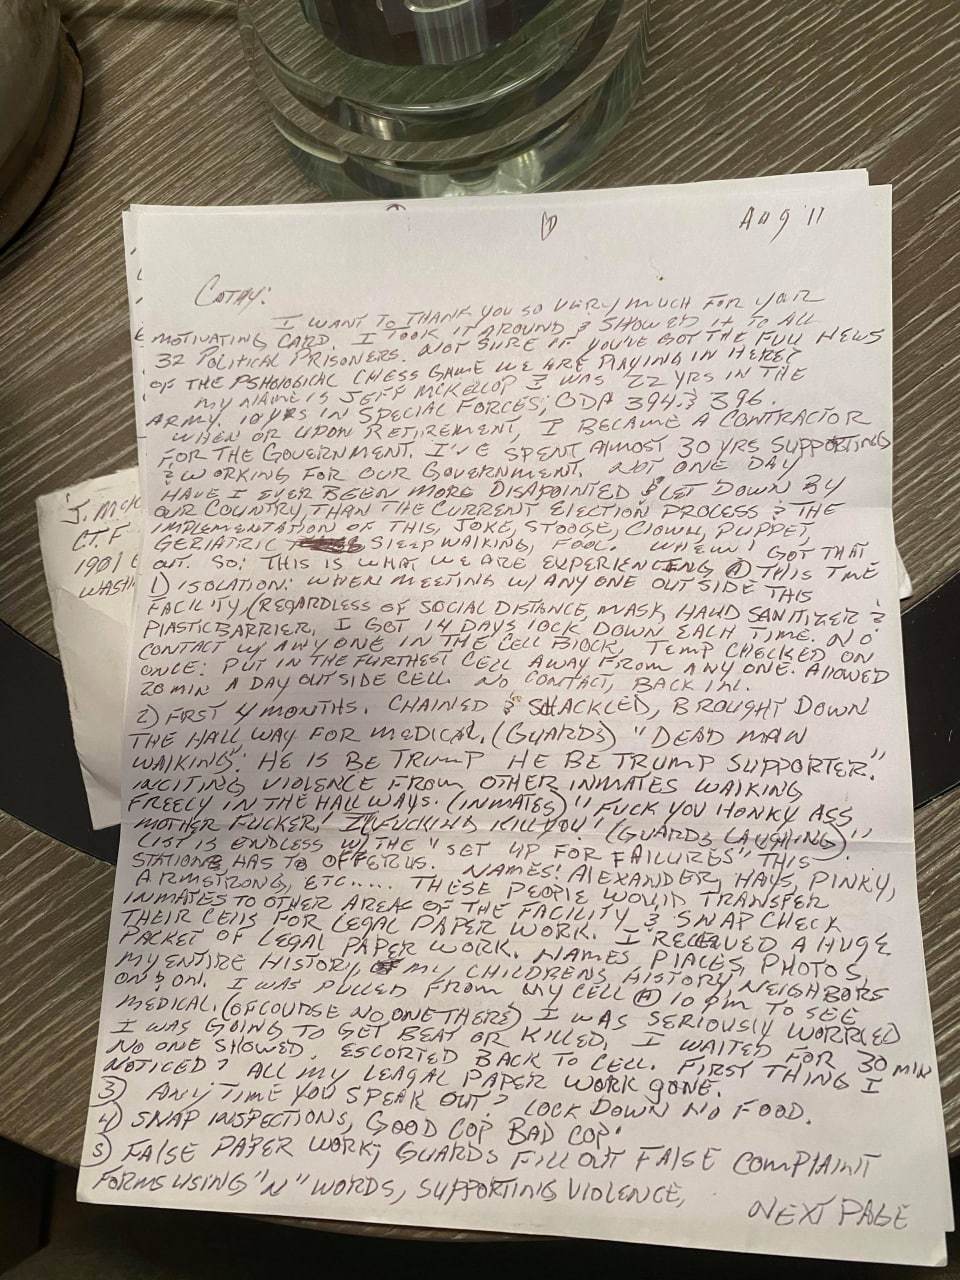 Aug 11
CATHY:
I WANT TO THANK YOU SO VERY MUCH FOR YOUR
MOTIVATING CARD. I TOOK IT AROUND & SHOWED IT TO ALL
32 POLITICAL PRISONERS. NOT SURE IF YOU'VE GOT THE FULL NEWS
OF THE PSHOLOGICAL CHESS GAME WE ARE PLAYING IN HERE?
MY NAME IS JEFF MCKELLOP & WAS 22 YRS IN THE
ARMY. 10 YRS IN SPECIAL FORCES, ODA 394 & 396.
WHEN OR UPON RETIREMENT, I BECAME A CONTRACTOR
FOR THE GOVERNMENT. I'VE SPENT ALMOST 30 YRS SUPPORTING
& WORKING FOR OUR GOVERNMENT. NOT ONE DAY
HAVE I EVER BEEN MORE DISAPOINTED & LET DOWN BY
OUR COUNTRY THAN THE CURRENT ELECTION PROCESS & THE
IMPLEMENTATION OF THIS, JOKE, STOOGE, CLOWN, PUPPET,
GERIATRIC SLEEP WALKING, FOOL. WHEW! GOT THAT
OUT. SO: THIS IS WHAT WE ARE EXPERIENCING @ THIS TIME
1) ISOLATION: WHEN MEETING W/ ANY ONE OUT SIDE THIS
FACILITY, (REGARDLESS OF SOCIAL DISTANCE, MASK, HAND SANITIZER &
PLASTIC BARRIER. I GOT 14 DAYS LOCK DOWN EACH TIME. NO
CONTACT W/ ANY ONE IN THE CELL BLOCK, TEMP CHECKED ON
ONCE: PUT IN THE FURTHEST CELL AWAY FROM ANY ONE. ALLOWED
20 MIN A DAY OUT SIDE CELL. NO CONTACT, BACK IN.
2) FIRST 4 MONTHS. CHAINED & SHACKLED, BROUGHT DOWN
THE HALL WAY FOR MEDICAL. (GUARDS) "DEAD MAN
WALKING." HE IS BE TRUMP HE BE TRUMP SUPPORTER."
INCITING VIOLENCE FROM OTHER INMATES WALKING
FREELY IN THE HALL WAYS. (INMATES) "FUCK YOU HONKY ASS
MOTHER FUCKER," I "FUCKING KILL YOU" (GUARDS LAUGHING)."
LIST IS ENDLESS W/ THE "SET UP FOR FAILURES" THIS
STATIONS HAS TO OFFER US. NAMES! ALEXANDER, HAYS, PINKY,
ARMSTRONG, ETC..... THESE PEOPLE WOULD TRANSFER
INMATES TO OTHER AREAS OF THE FACILITY & SNAP CHECK
THEIR CELLS FOR LEGAL PAPER WORK. I RECEIVED A HUGE
PACKET OF LEGAL PAPER WORK. NAMES PLACES, PHOTOS,
MY ENTIRE HISTORY, MY CHILDRENS HISTORY, NEIGHBORS
ON & ON. I WAS PULLED FROM MY CELL @ 10 PM TO SEE
MEDICAL. (OF COURSE NO ONE THERE) I WAS SERIOUSLY WORRIED
I WAS GOING TO GET BEAT OR KILLED. I WAITED FOR 30 MIN
NO ONE SHOWED. ESCORTED BACK TO CELL. FIRST THING I
NOTICED? ALL MY LEAGAL PAPER WORK GONE.
3) ANY TIME YOU SPEAK OUT? LOCK DOWN NO FOOD.
4) SNAP INSPECTIONS, GOOD COP BAD COP.
5) FALSE PAPER WORK; GUARDS FILL OUT FALSE COMPLAINT
FORMS USING "N" WORDS, SUPPORTING VIOLENCE,
NEXT PAGE
J. MCK
C.T.F
1901
WASH